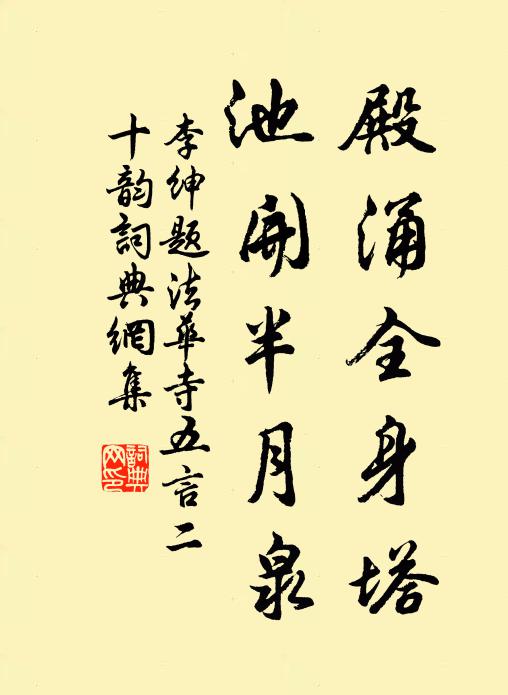 殿涌全身塔
池開半月泉
李紳題法華寺五言二
十韵詞典網集
詞典网印